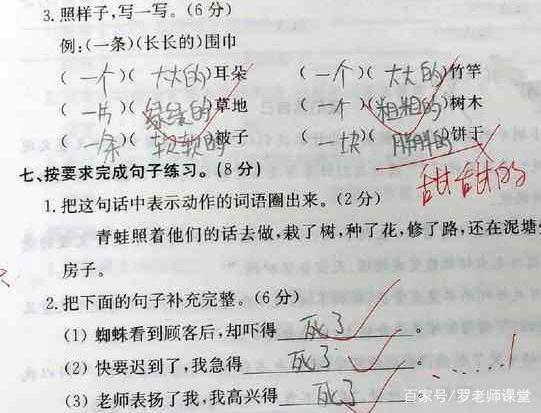 3.照样子,写一写。(6分)
例:(一条)(长长的)围巾
(一个)(大大的)耳朵 (一个)(大大的)竹竿
(一片)(绿绿的)草地 (一个)(粗粗的)树木
(一条)(软软的)被子 (一块)(胖胖的)饼干
甜甜的
七、按要求完成句子练习。(8分)
1.把这句话中表示动作的词语圈出来。(2分)
青蛙照着他们的话去做,栽了树,种了花,修了路,还在泥塘
房子。
2.把下面的句子补充完整。(6分)
(1) 蜘蛛看到顾客后,却吓得 死了 。
(2) 快要迟到了,我急得 死了 。......!
(3) 老师表扬了我,我高兴得 死了
百家号/罗老师课堂